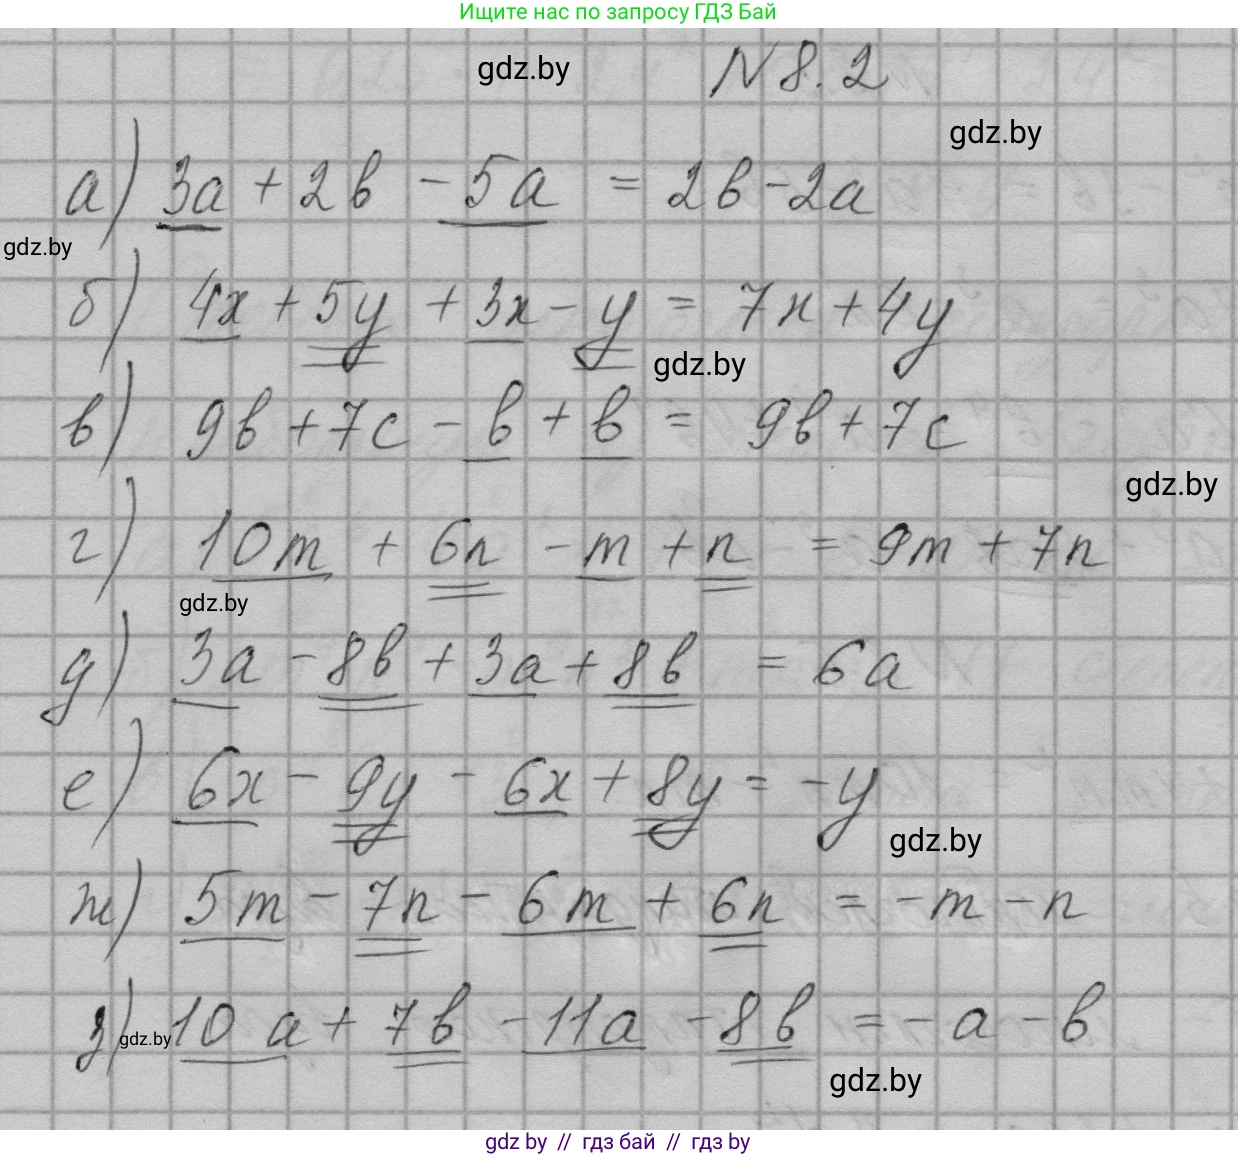 Ищите нас по запросу ГДЗ Бай
gdz.by
N 8.2
gdz.by
а) 3а + 2в - 5а = 2в - 2а
gdz.by
б) 4x + 5y + 3x - y = 7x + 4y
gdz.by
в) 9в + 7с - в + в = 9в + 7с
gdz.by
г) 10m + 6n - m + n = 9m + 7n
gdz.by
д) 3а - 8в + 3а + 8в = 6а
е) 6x - 9y - 6x + 8y = -y
gdz.by
ж) 5m - 7n - 6m + 6n = -m - n
з) 10а + 7в - 11а - 8в = -а - в
gdz.by
gdz.by
gdz by // гдз бай // gdz by